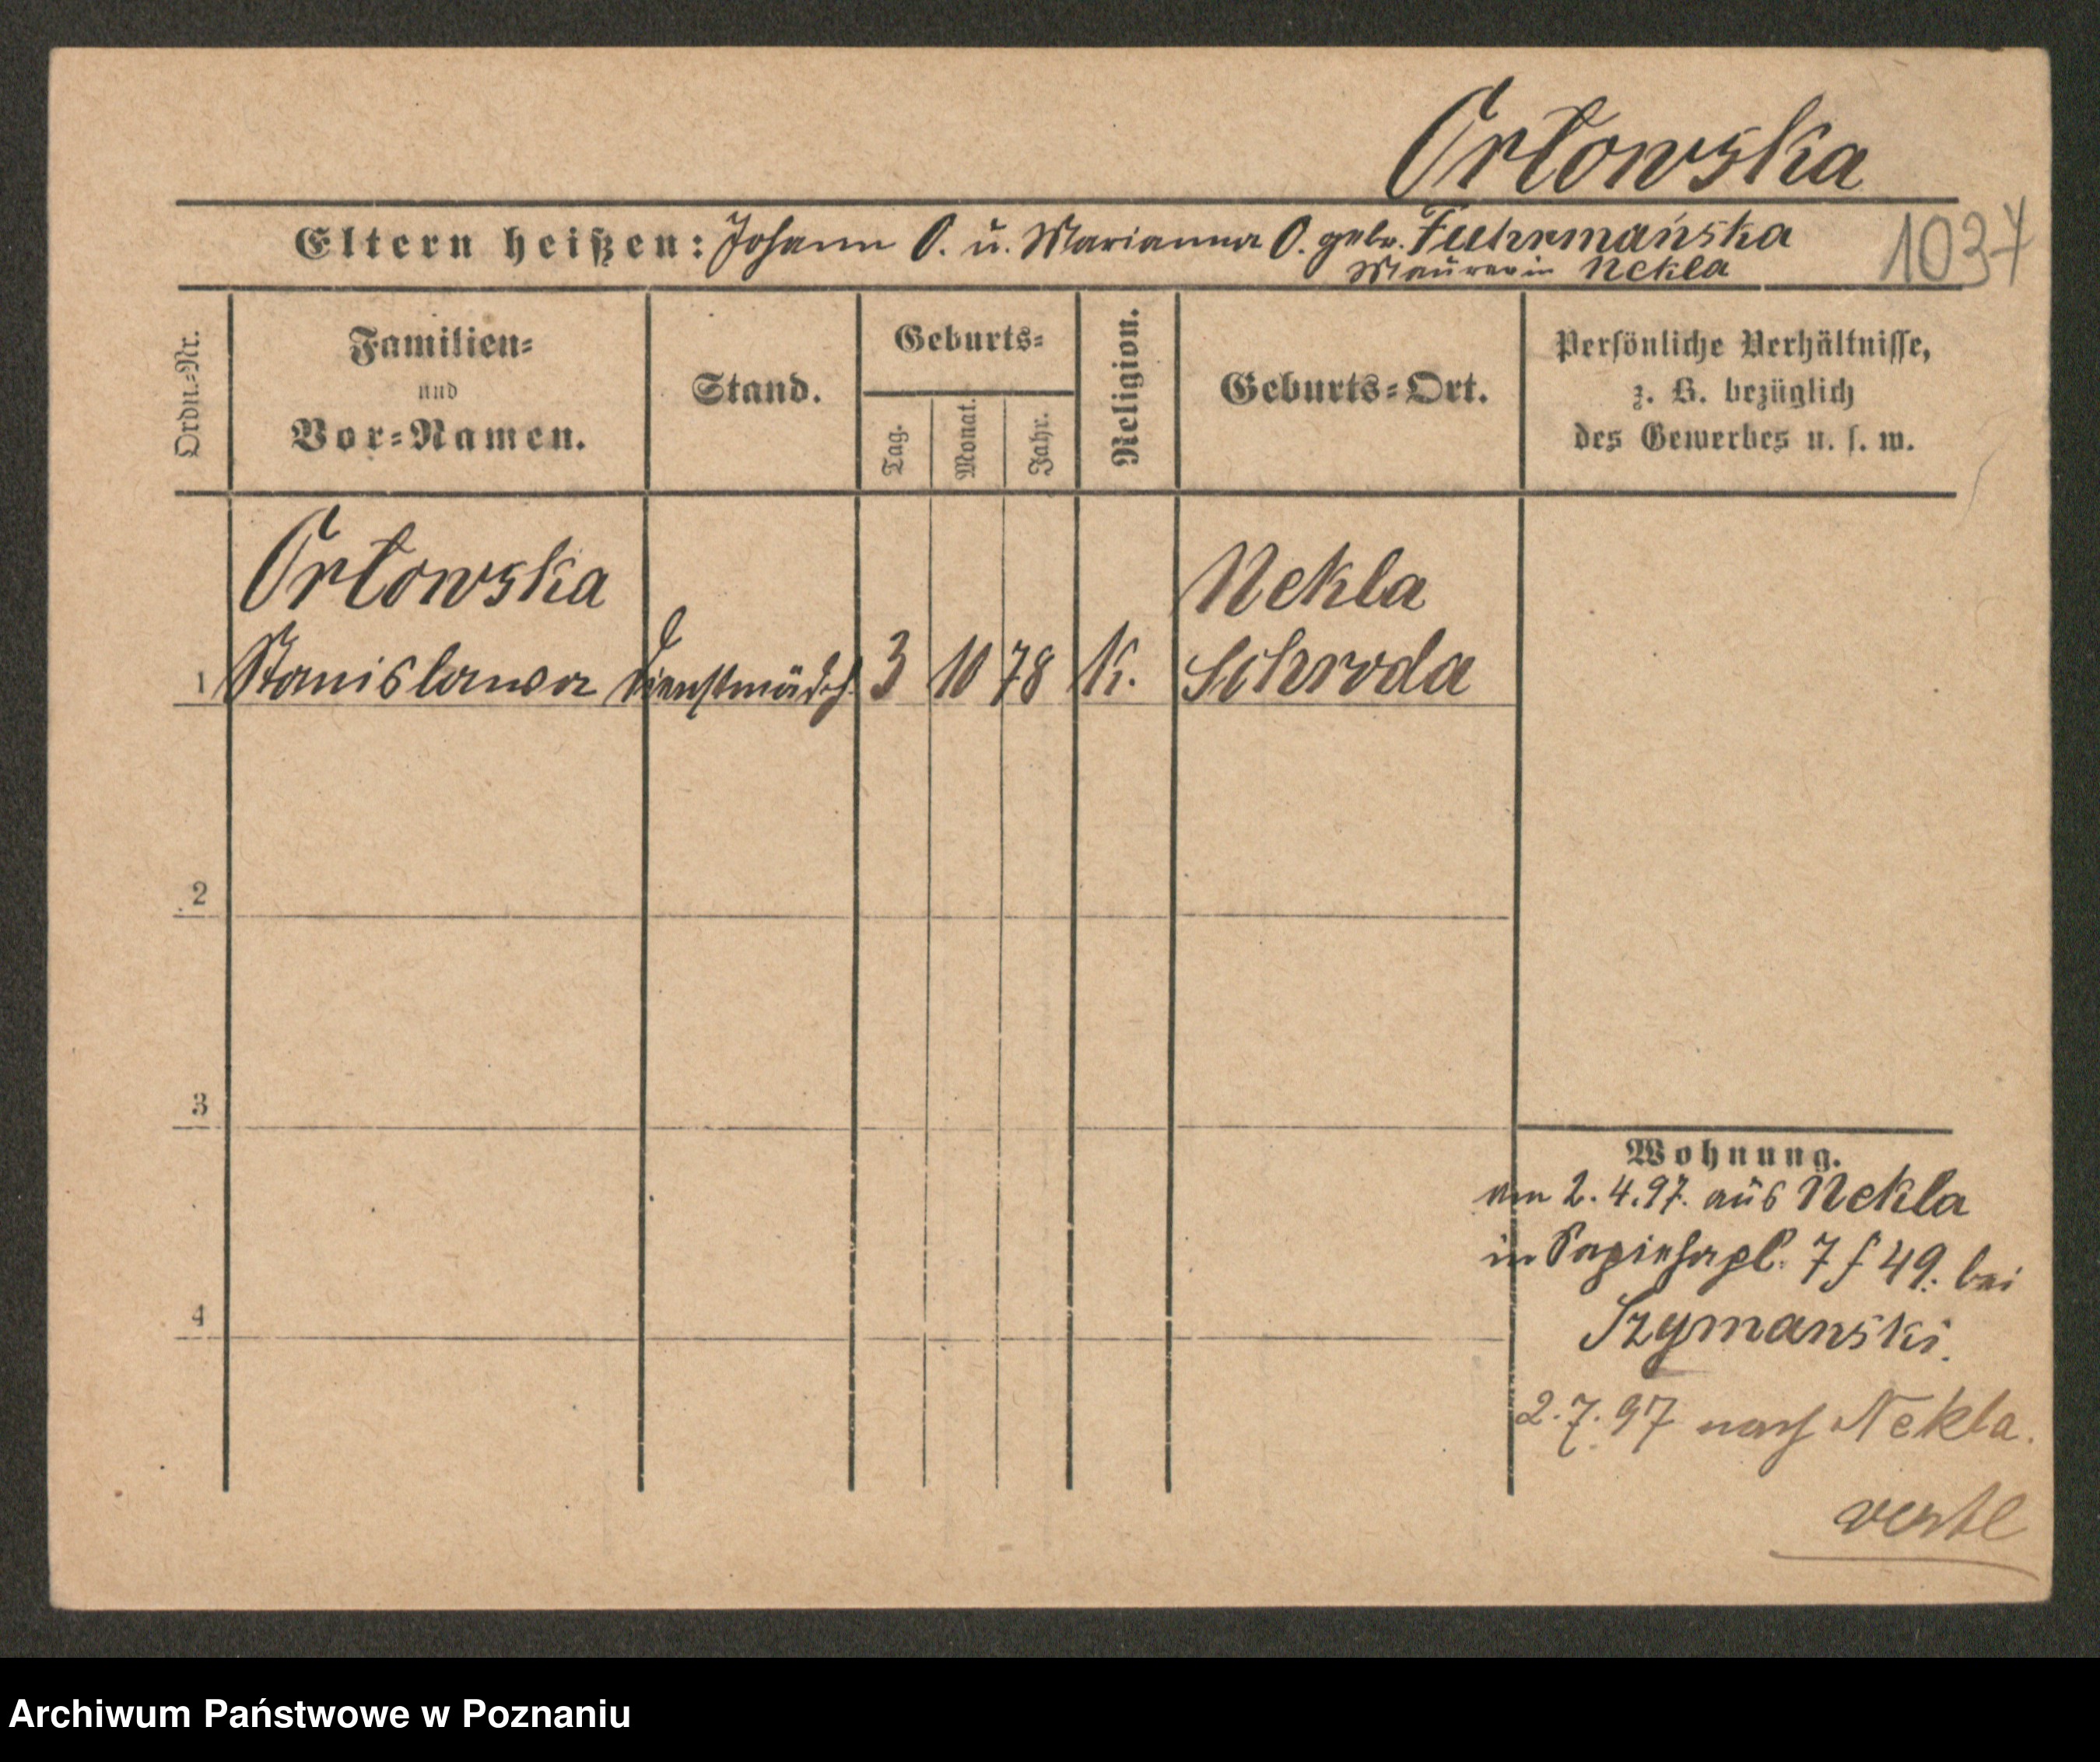 Orłowska
Eltern heißen: Johann O. u. Marianna O. geb. Fuhrmańska
Maurer in Nekla
1037
Ordn.-Nr.
Familien-
und
Vor-Namen.
Stand.
Geburts-
Tag.
Monat.
Jahr.
Religion.
Geburts-Ort.
Persönliche Verhältnisse,
z. B. bezüglich
des Gewerbes u. s. w.
Orłowska Nekla
1 Stanislawa Dienstmädch. 3 10 78 K. Schroda
2
3
4
Wohnung.
am 2.4.97. aus Nekla
in Sapiehapl. 7 f 49. bei
Szymanski.
2.7.97 nach Nekla.
Archiwum Państwowe w Poznaniu